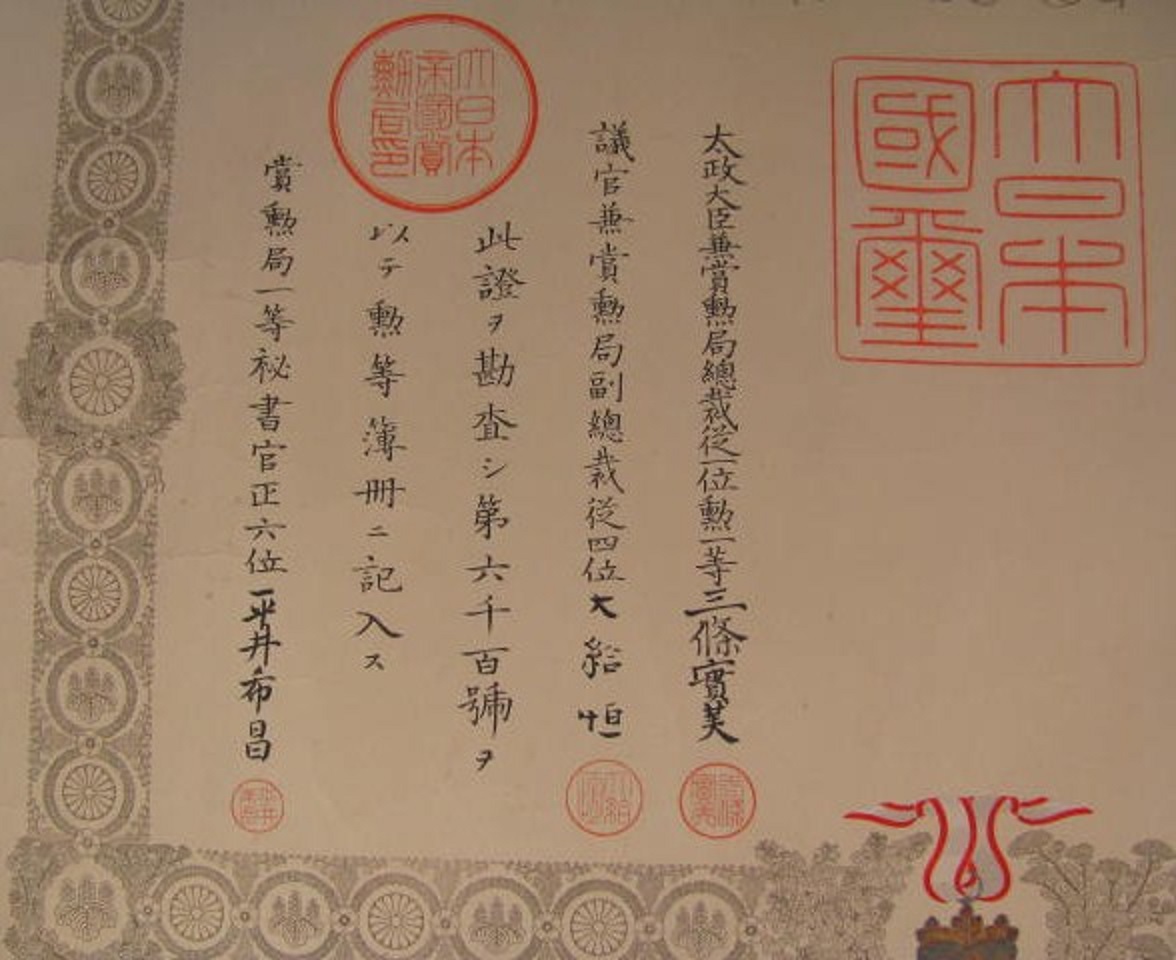 大日本國璽
太政大臣兼賞勲局總裁從一位勲一等三條實美
議官兼賞勲局副總裁從四位大給恒
大日本帝國賞勲局印
此證ヲ勘査シ第六千百號ヲ
以テ勲等簿冊ニ記入ス
賞勲局一等秘書官正六位平井希昌